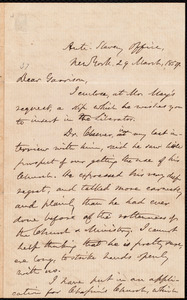 Anti-Slavery Office,
New York, 29 March, 1859.
Dear Garrison,
I enclose, at Mr. May's
request, a slip which he wishes you
to insert in the Liberator.
Dr. Cheever in my last in-
terview with him, said he saw little
prospect of our getting the use of his
Church. He expressed his very deep
regret, and talked more earnestly,
and plainly, than he had ever
done before of the rottenness of
the Church & Ministry. I cannot
help thinking that he is pretty near,
ere long, to strike hands openly
with us.
I have put in an appli-
cation for Chapin's Church, which